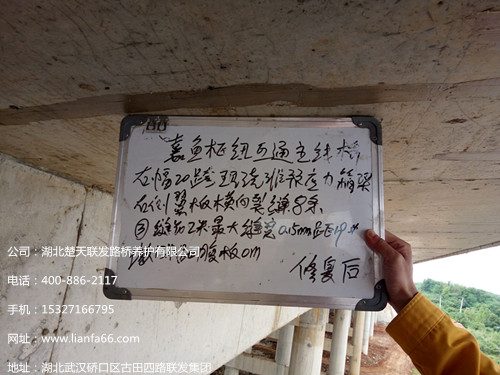 嘉鱼枢纽互通主线桥
右幅20跨现浇预应力箱梁
右侧翼板横向裂缝8条
③缝长2米最大缝宽0.15mm距19#
腹板0m
修复后
公司：湖北楚天联发路桥养护有限公司
电话：400-886-2117
手机：15327166795
网址：www.lianfa66.com
地址：湖北武汉硚口区古田四路联发集团